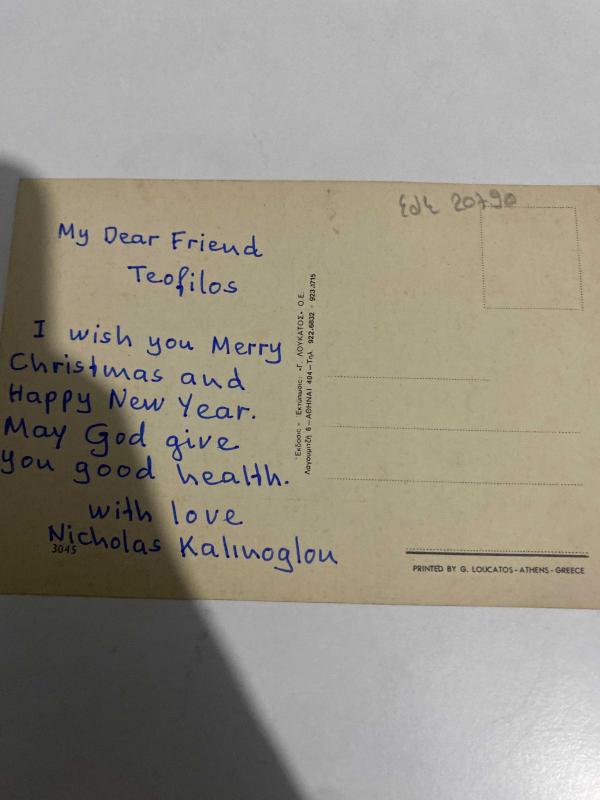 My Dear Friend
Teofilos
I wish you Merry
Christmas and
Happy New Year.
May God give
you good health.
with love
Nicholas Kalinoglou
3045
20790
Ἔκδοσις - Ἐκτύπωσις: «Γ. ΛΟΥΚΑΤΟΣ» Ο.Ε.
Λαγουμιτζῆ 6 - ΑΘΗΝΑΙ 404 - Τηλ. 922.6832 - 923.1715
PRINTED BY G. LOUCATOS - ATHENS - GREECE